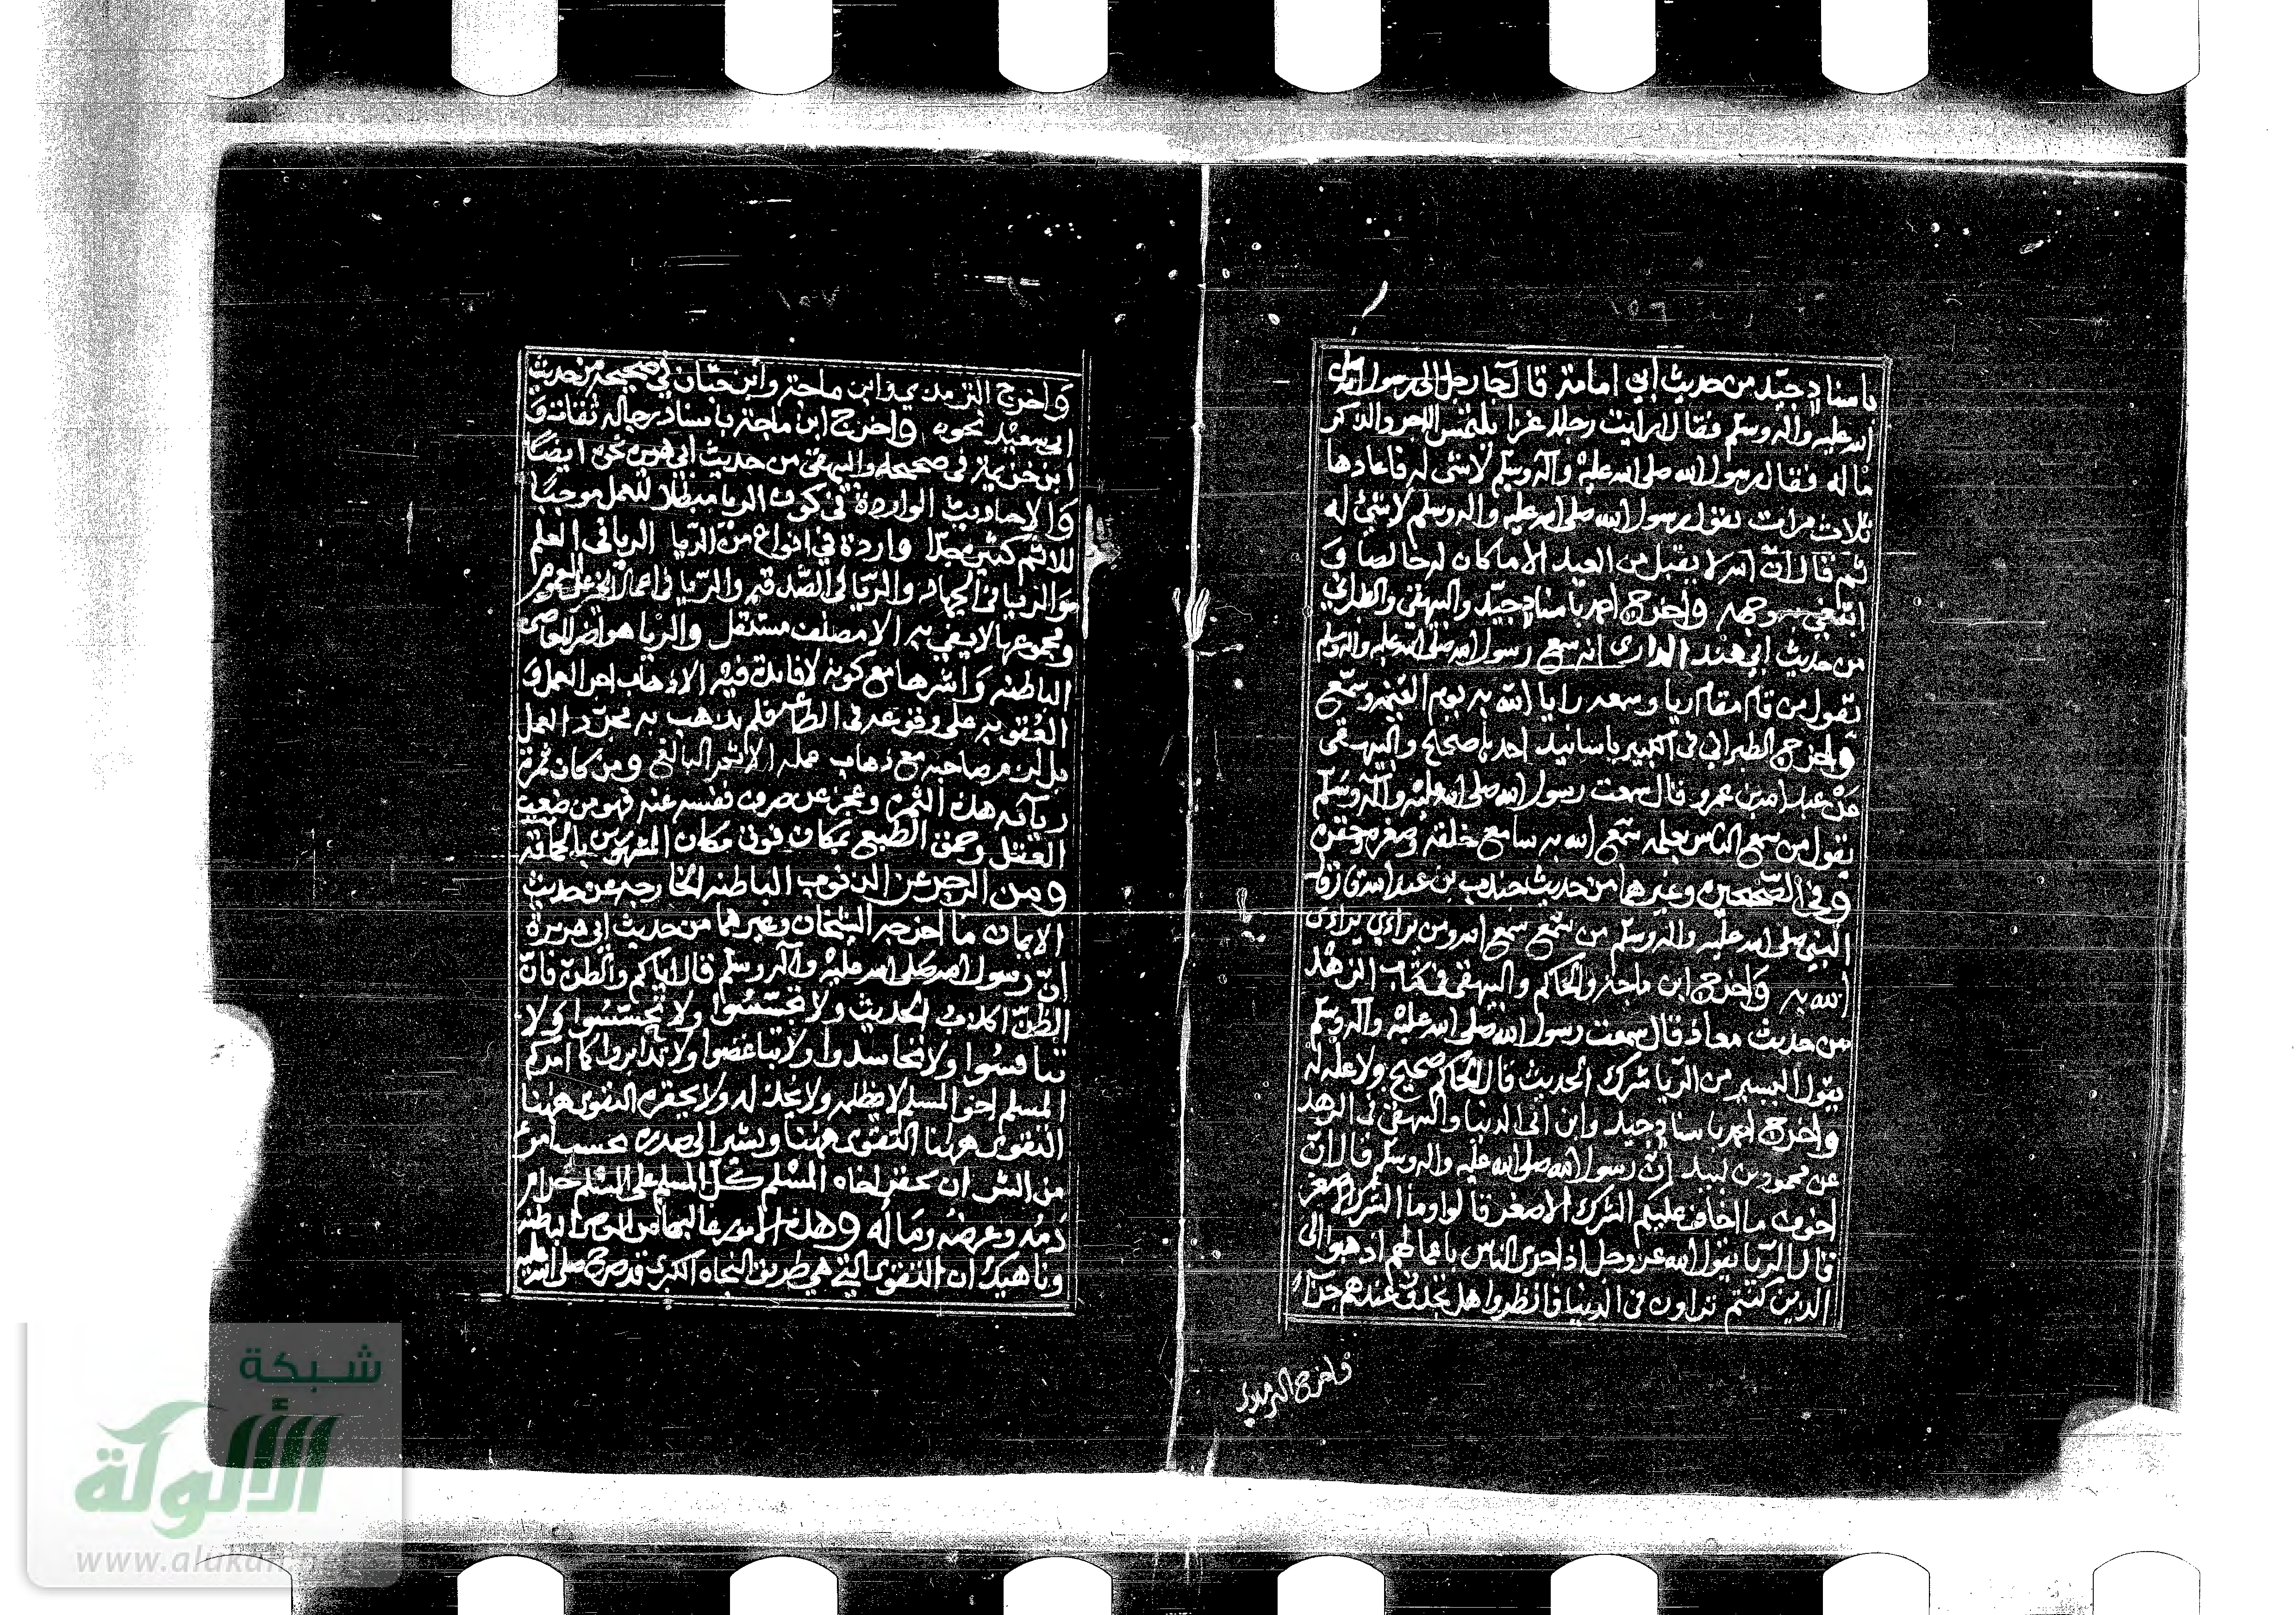 ١٥٦
باسناد جيّد من حديث أبي امامة قال جا رجل الى رسول الله صلى
الله عليه واله وسلم فقال ارايت رجلا غزا يلتمس الاجر والذكر
ما له فقال رسول الله صلى الله عليه وآله وسلم لا شئ له فاعادها
ثلاث مرات يقول رسول الله صلى الله عليه واله وسلم لا شئ له
ثم قال انّ الله لا يقبل من العمل الا ما كان له خالصا و
ابتغي وجهه واخرج احمد باسناد جيّد والبيهقي والطبراني
من حديث ابي هند الداري انه سمع رسول الله صلى الله عليه واله وسلم
يقول من قام مقام ريا وسمعه رايا الله به يوم القيمه وسمّع
واخرج الطبراني في الكبير باسانيد احدها صحيح والبيهقى
عن عبد الله بن عمرو قال سمعت رسول الله صلى الله عليه وآله وسلّم
يقول من سمع الناس بعمله سمّع الله به سامع خلقه وصغره وحقره
وفي الصّحيحين وغيرهما من حديث جندب بن عبد الله قال قال
النبي صلى الله عليه واله وسلم من سمّع سمع الله ومن يرائ يرائ
الله به واخرج ابن ماجة والحاكم والبيهقى في كتاب الزهد
من حديث معاذ قال سمعت رسول الله صلى الله عليه وآله وسلم
يقول اليسير من الرّيا شرك الحديث قال الحاكم صحيح ولا علّة له
واخرج احمد باسناد جيد وابن ابى الدنيا والبيهقى فى الزهد
عن محمود بن لبيد انّ رسول الله صلى الله عليه واله وسلم قال انّ
اخوف ما اخاف عليكم الشرك الاصغر قالوا وما الشرك الاصغر
قال الرّيا يقول الله عز وجل اذا جزى الناس باعمالهم اذهبوا الى
الذين كنتم تراون في الدنيا فانظروا هل تجدون عندهم جزاء
واخرج الترمذي
١٥٧
واخرج الترمذي وابن ماجة وابن حبّان في صحيحه من حديث
ابى سعيد نحوه واخرج ابن ماجة باسناد رجاله ثقات و
ابن خزيمة في صحيحه والبيهقى من حديث أبي هريره نحوه ايضًا
والاحاديث الواردة في كون الريا مبطلا للعمل موجبًا
للاثم كثيرة جدّا واردة في انواع من الرّيا الريا في العلم
والريا في الجهاد والرّيا في الصّدقة والرّيا في اعمال الخير على العموم
ومجموعها لا يفي به الا مصنّف مستقل والرّيا هو اضر المعاصى
الباطنه واشرها مع كونه لا فائدة فيه الا ذهاب اجر العمل و
العقوبه على وقوعه في الطاعه فلم يذهب به مجرّد العمل
بل لزم صاحبه مع ذهاب عمله الاثم البالغ ومن كان ثمرة
ريآئه هذه الثمرة وعجز عن صرف نفسه عنه فهو من ضعف
العقل وحمق الطبع بمكان فوق مكان المشهورين بالحماقه
ومن الزجر عن الذنوب الباطنه الخارجه عن حديث
الايمان ما اخرجه الشيخان وغيرهما من حديث ابي هريرة
انّ رسول الله صلى الله عليه وآله وسلم قال ايّاكم والظنّ فانّ
الظنّ اكذب الحديث ولا تحسّسوا ولا تجسّسوا ولا
تنافسُوا ولا تحاسدوا ولا تباغضوا ولا تدابروا كما امركم
المسلم اخو المسلم لا يظلمه ولا يخذله ولا يحقره التقوى ههنا
التقوى ههنا التقوى ههنا ويشير الى صدره بحسب امرئ
من الشر ان يحقر اخاه المسْلم كلّ المسلم على المسْلم حرام
دمُه وعرضُه ومَالُه وهذه الامور غالبها من المعاصى الباطنه
وناهيك ان التقوى التي هي طريق النجاة الكبرى قد صرح صلى الله عليه
شبكة
الألوكة